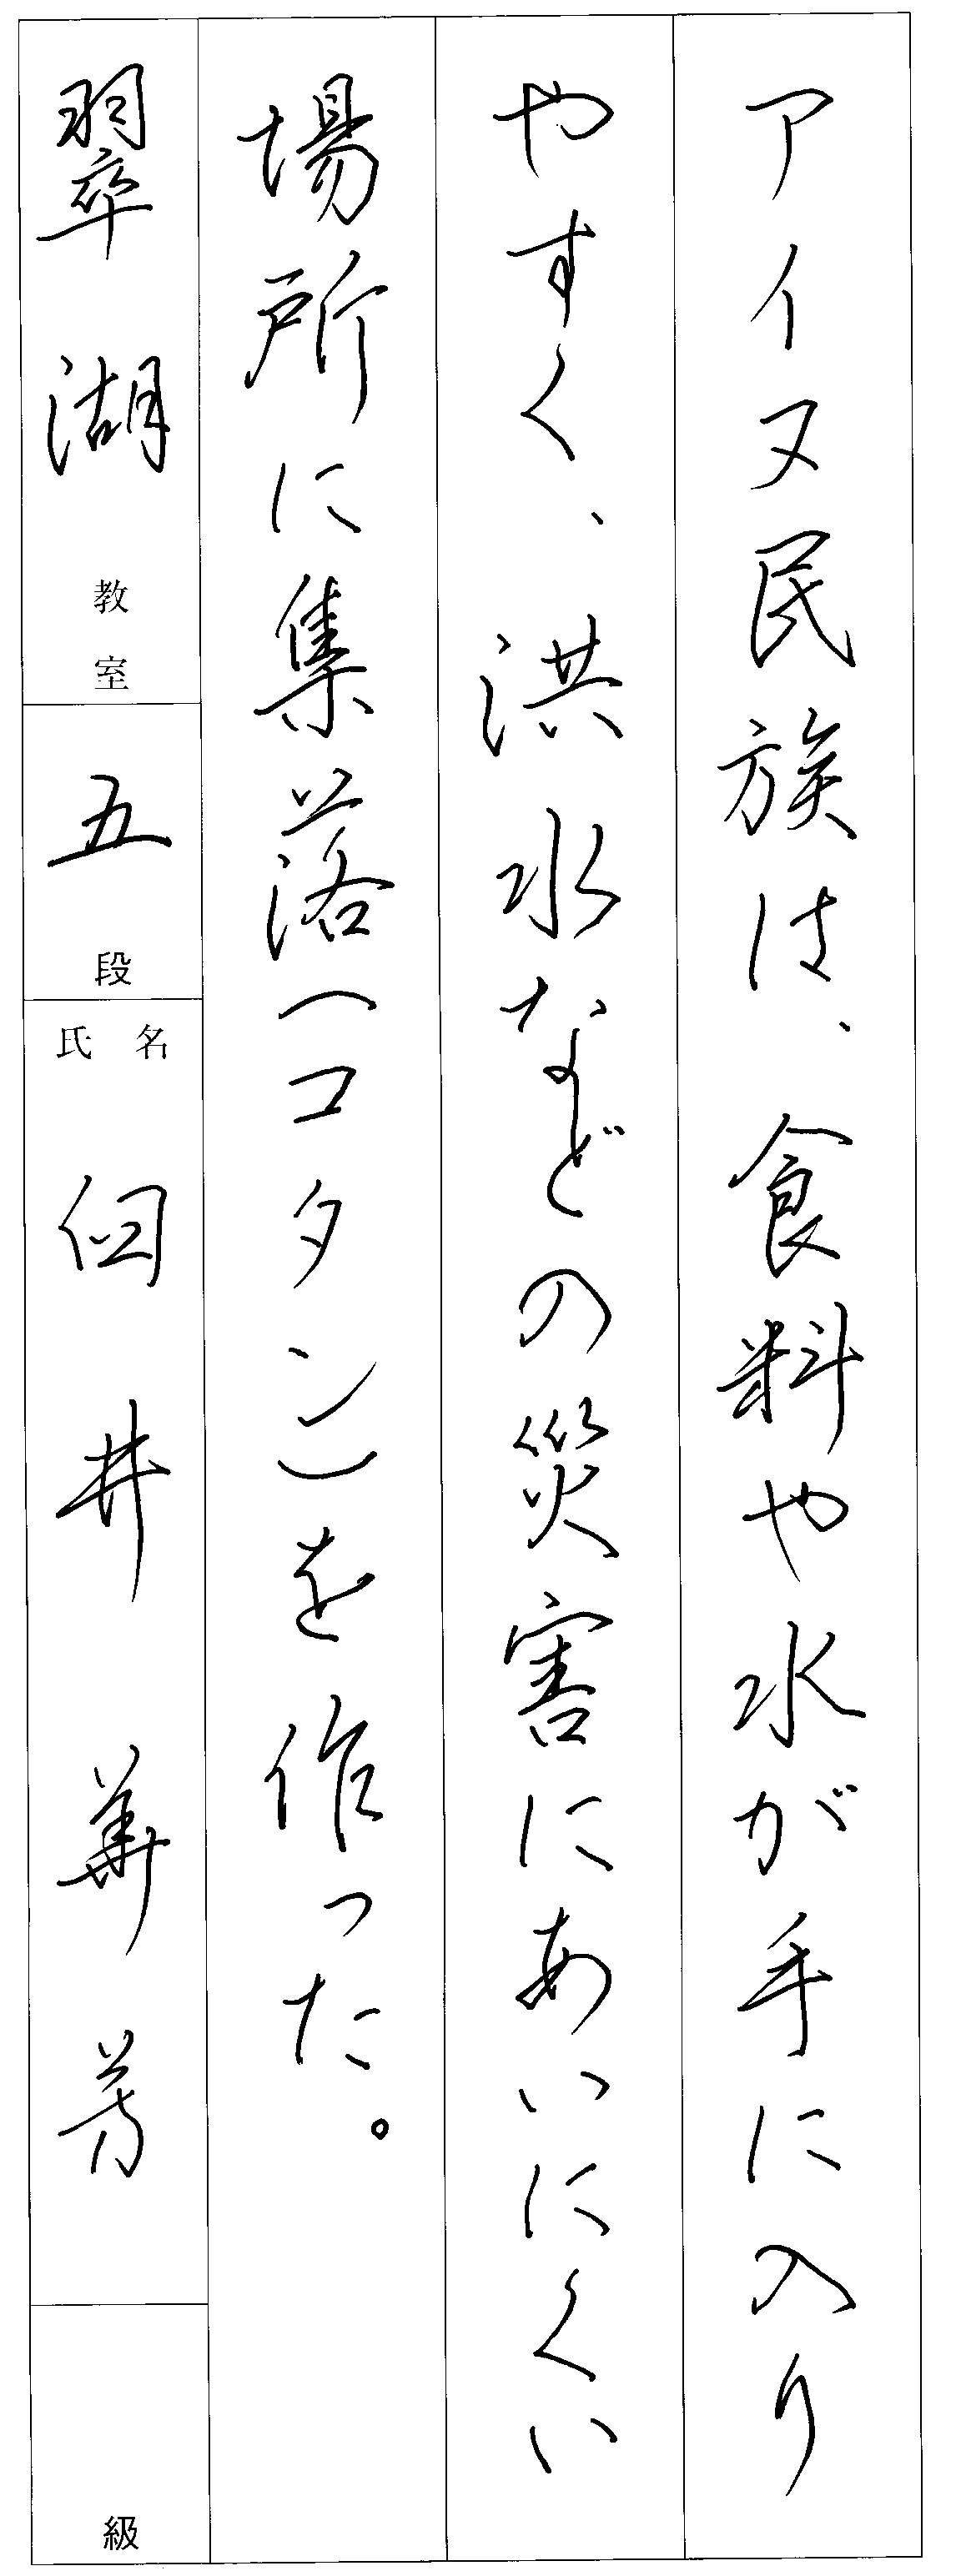 アイヌ民族は、食料や水が手に入り
やすく、洪水などの災害にあいにくい
場所に集落(コタン)を作った。
翠湖教室
五段
氏名 井 華芳
級